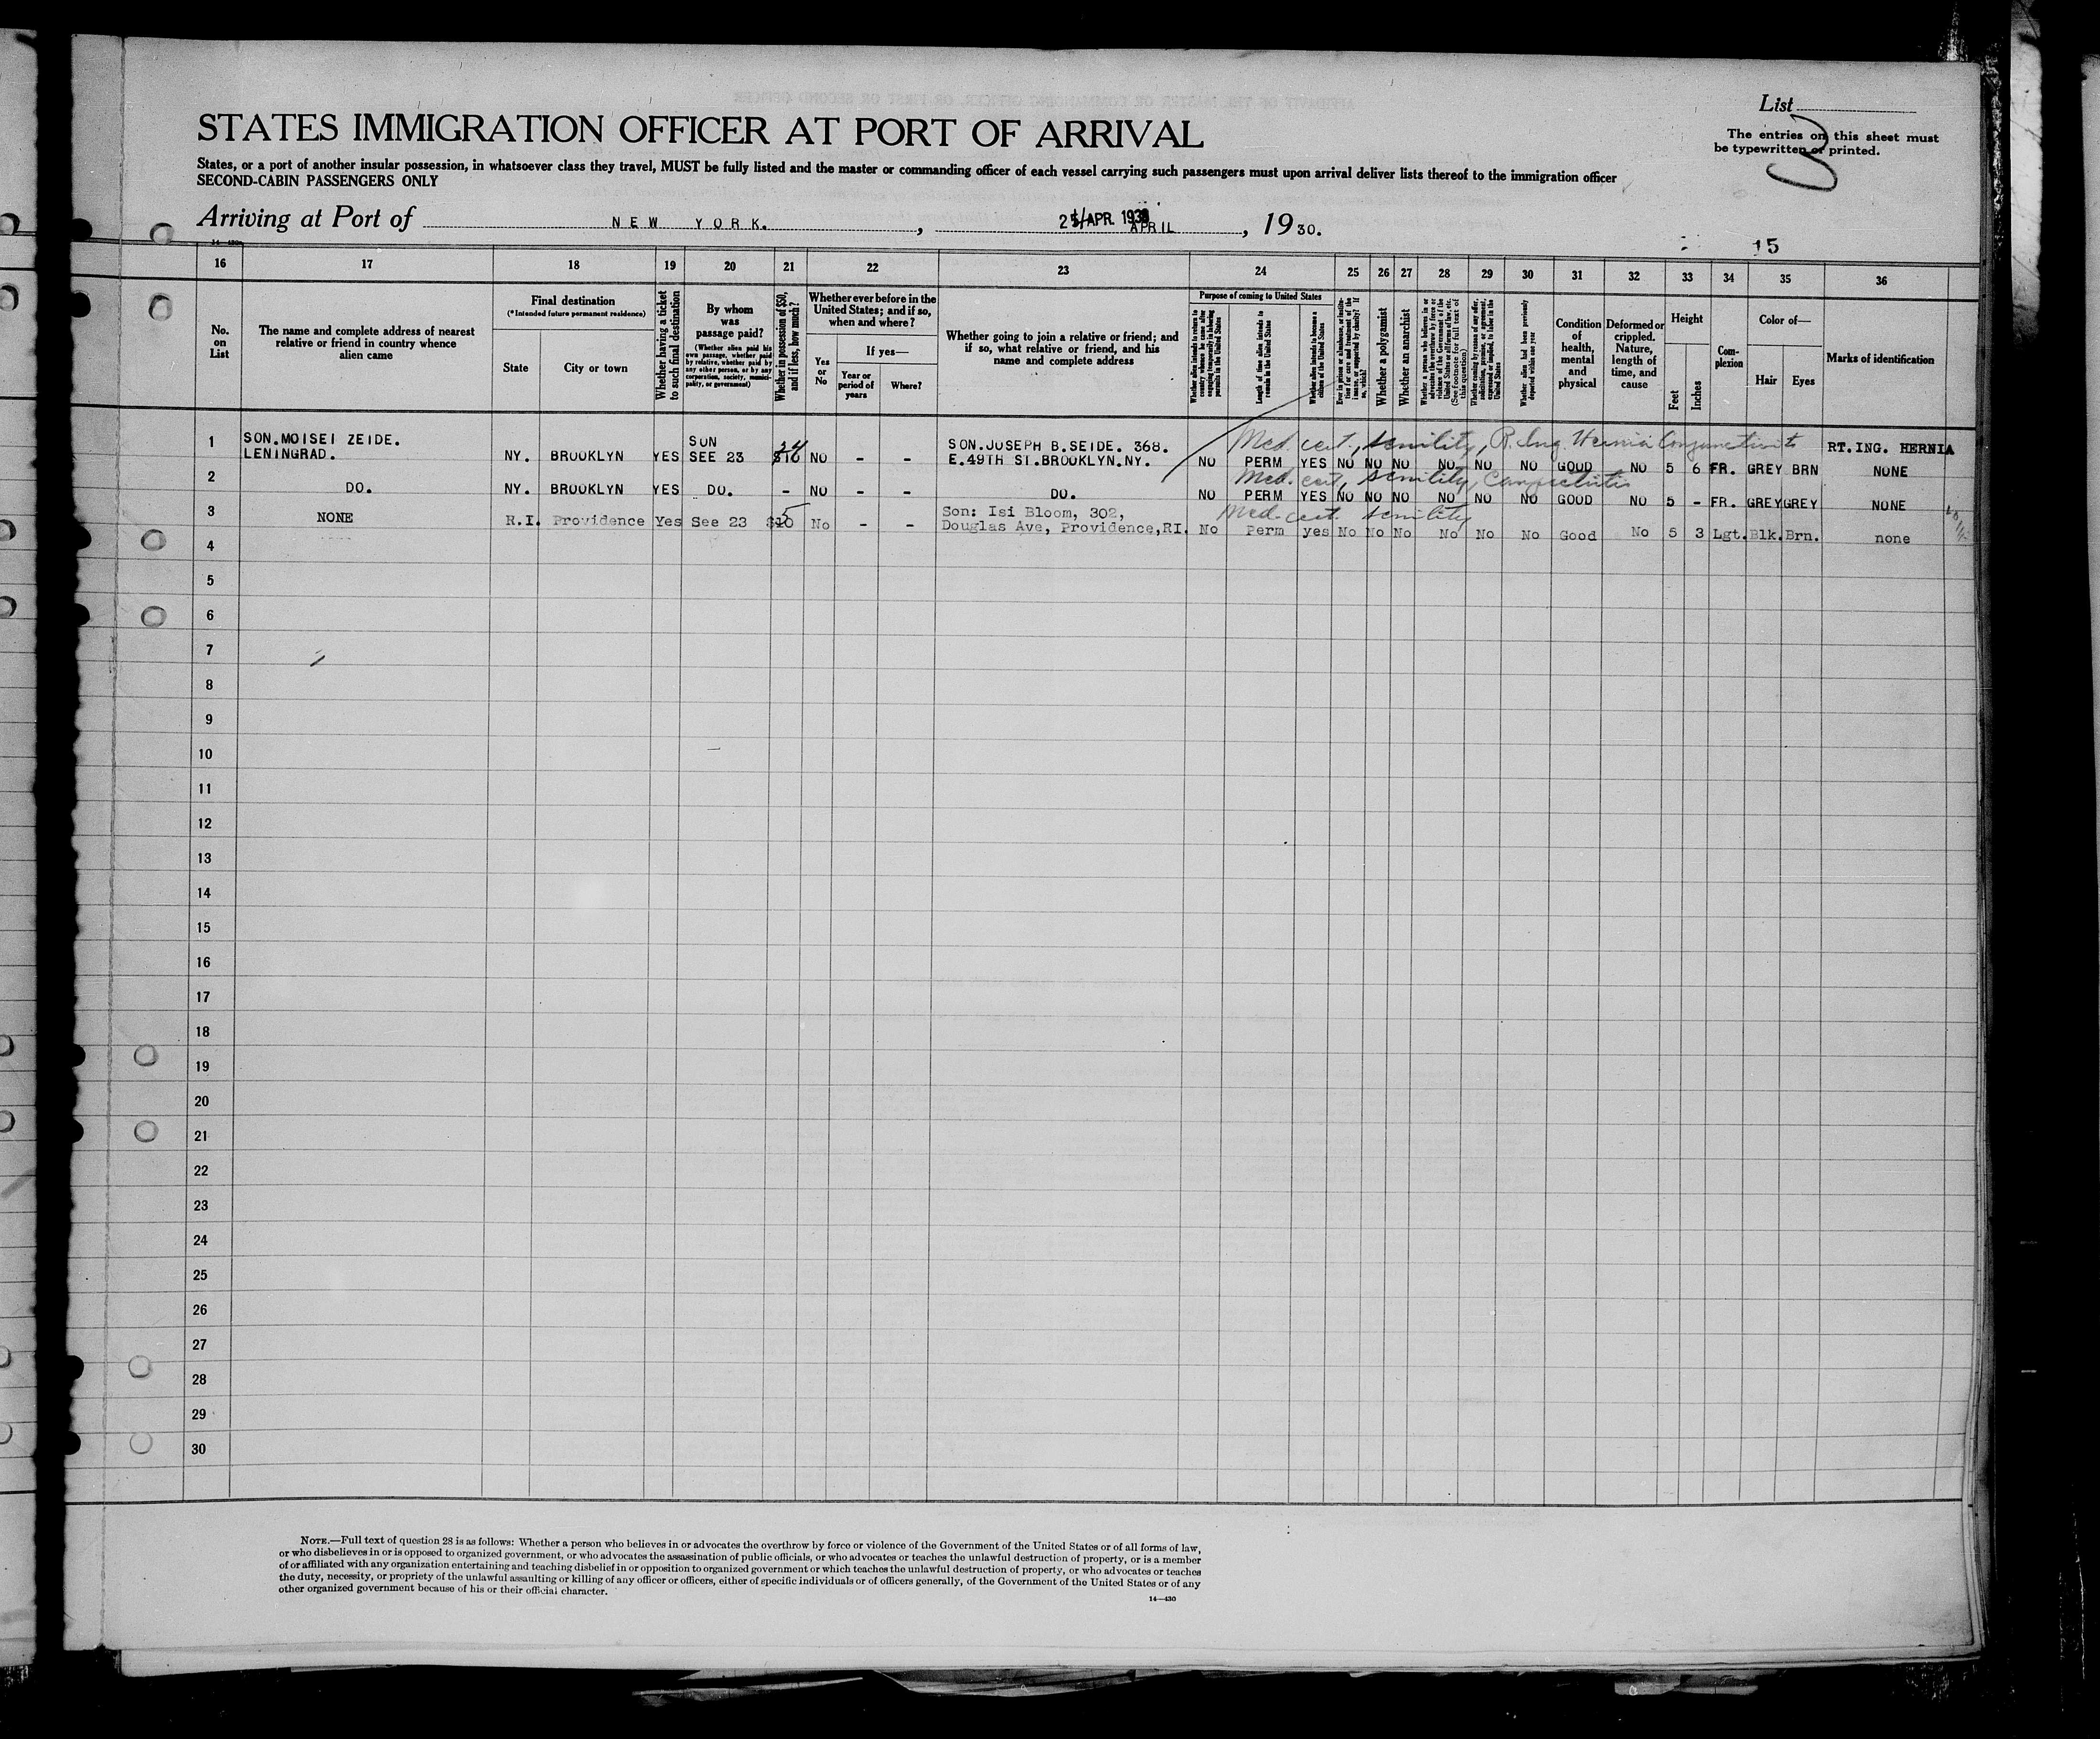 List
STATES IMMIGRATION OFFICER AT PORT OF ARRIVAL
The entries on this sheet must
be typewritten or printed.
3
States, or a port of another insular possession, in whatsoever class they travel, MUST be fully listed and the master or commanding officer of each vessel carrying such passengers must upon arrival deliver lists thereof to the immigration officer
SECOND-CABIN PASSENGERS ONLY
Arriving at Port of NEW YORK. , APR. 1930 APRIL , 1930.
15
14-430
16 17 18 19 20 21 22 23 24 25 26 27 28 29 30 31 32 33 34 35 36
No. on List
The name and complete address of nearest relative or friend in country whence alien came
Final destination
(*Intended future permanent residence)
State
City or town
Whether having a ticket to such final destination
By whom was passage paid?
(Whether alien paid his own passage, whether paid by relative, whether paid by any other person, or by any corporation, society, municipality, or government)
Whether in possession of $50, and if less, how much?
Whether ever before in the United States; and if so, when and where?
Yes or No
If yes—
Year or period of years
Where?
Whether going to join a relative or friend; and if so, what relative or friend, and his name and complete address
Purpose of coming to United States
Whether alien intends to return to country whence he came after engaging temporarily in laboring pursuits in United States
Length of time alien intends to remain in the United States
Whether alien intends to become a citizen of the United States
Ever in prison or almshouse, or institution for care and treatment of the insane, or supported by charity? If so, which?
Whether a polygamist
Whether an anarchist
(See footnote for full text of this question)
Whether coming by reason of any offer, solicitation, promise, or agreement, expressed or implied, to labor in the United States
Whether alien had been previously deported within one year
Condition of health, mental and physical
Deformed or crippled. Nature, length of time, and cause
Height
Feet
Inches
Complexion
Color of—
Hair
Eyes
Marks of identification
Med. cert., senility, R. Ing. Hernia Conjunctivitis
1 SON.MOISEI ZEIDE. SON SON.JOSEPH B.SEIDE. 368. RT.ING. HERNIA
LENINGRAD. NY. BROOKLYN YES SEE 23 $10 NO - - E.49TH ST.BROOKLYN.NY. NO PERM YES NO NO NO NO NO NO GOOD NO 5 6 FR. GREY BRN NONE
Med. cert, senility, Conjunctivitis
2 DO. NY. BROOKLYN YES DO. - NO - - DO. NO PERM YES NO NO NO NO NO NO GOOD NO 5 - FR. GREY GREY NONE
Med. cert. senility
3 NONE R.I. Providence Yes See 23 $10 5 No - - Son: Isi Bloom, 302,
Douglas Ave, Providence,RI. No Perm yes No No No No No No Good No 5 3 Lgt. Blk. Brn. none
4
5
6
7
8
9
10
11
12
13
14
15
16
17
18
19
20
21
22
23
24
25
26
27
28
29
30
NOTE.—Full text of question 28 is as follows: Whether a person who believes in or advocates the overthrow by force or violence of the Government of the United States or of all forms of law,
or who disbelieves in or is opposed to organized government, or who advocates the assassination of public officials, or who advocates or teaches the unlawful destruction of property, or is a member
of or affiliated with any organization entertaining and teaching disbelief in or opposition to organized government or which teaches the unlawful destruction of property, or who advocates or teaches
the duty, necessity, or propriety of the unlawful assaulting or killing of any officer or officers, either of specific individuals or of officers generally, of the Government of the United States or of any
other organized government because of his or their official character.
14—430